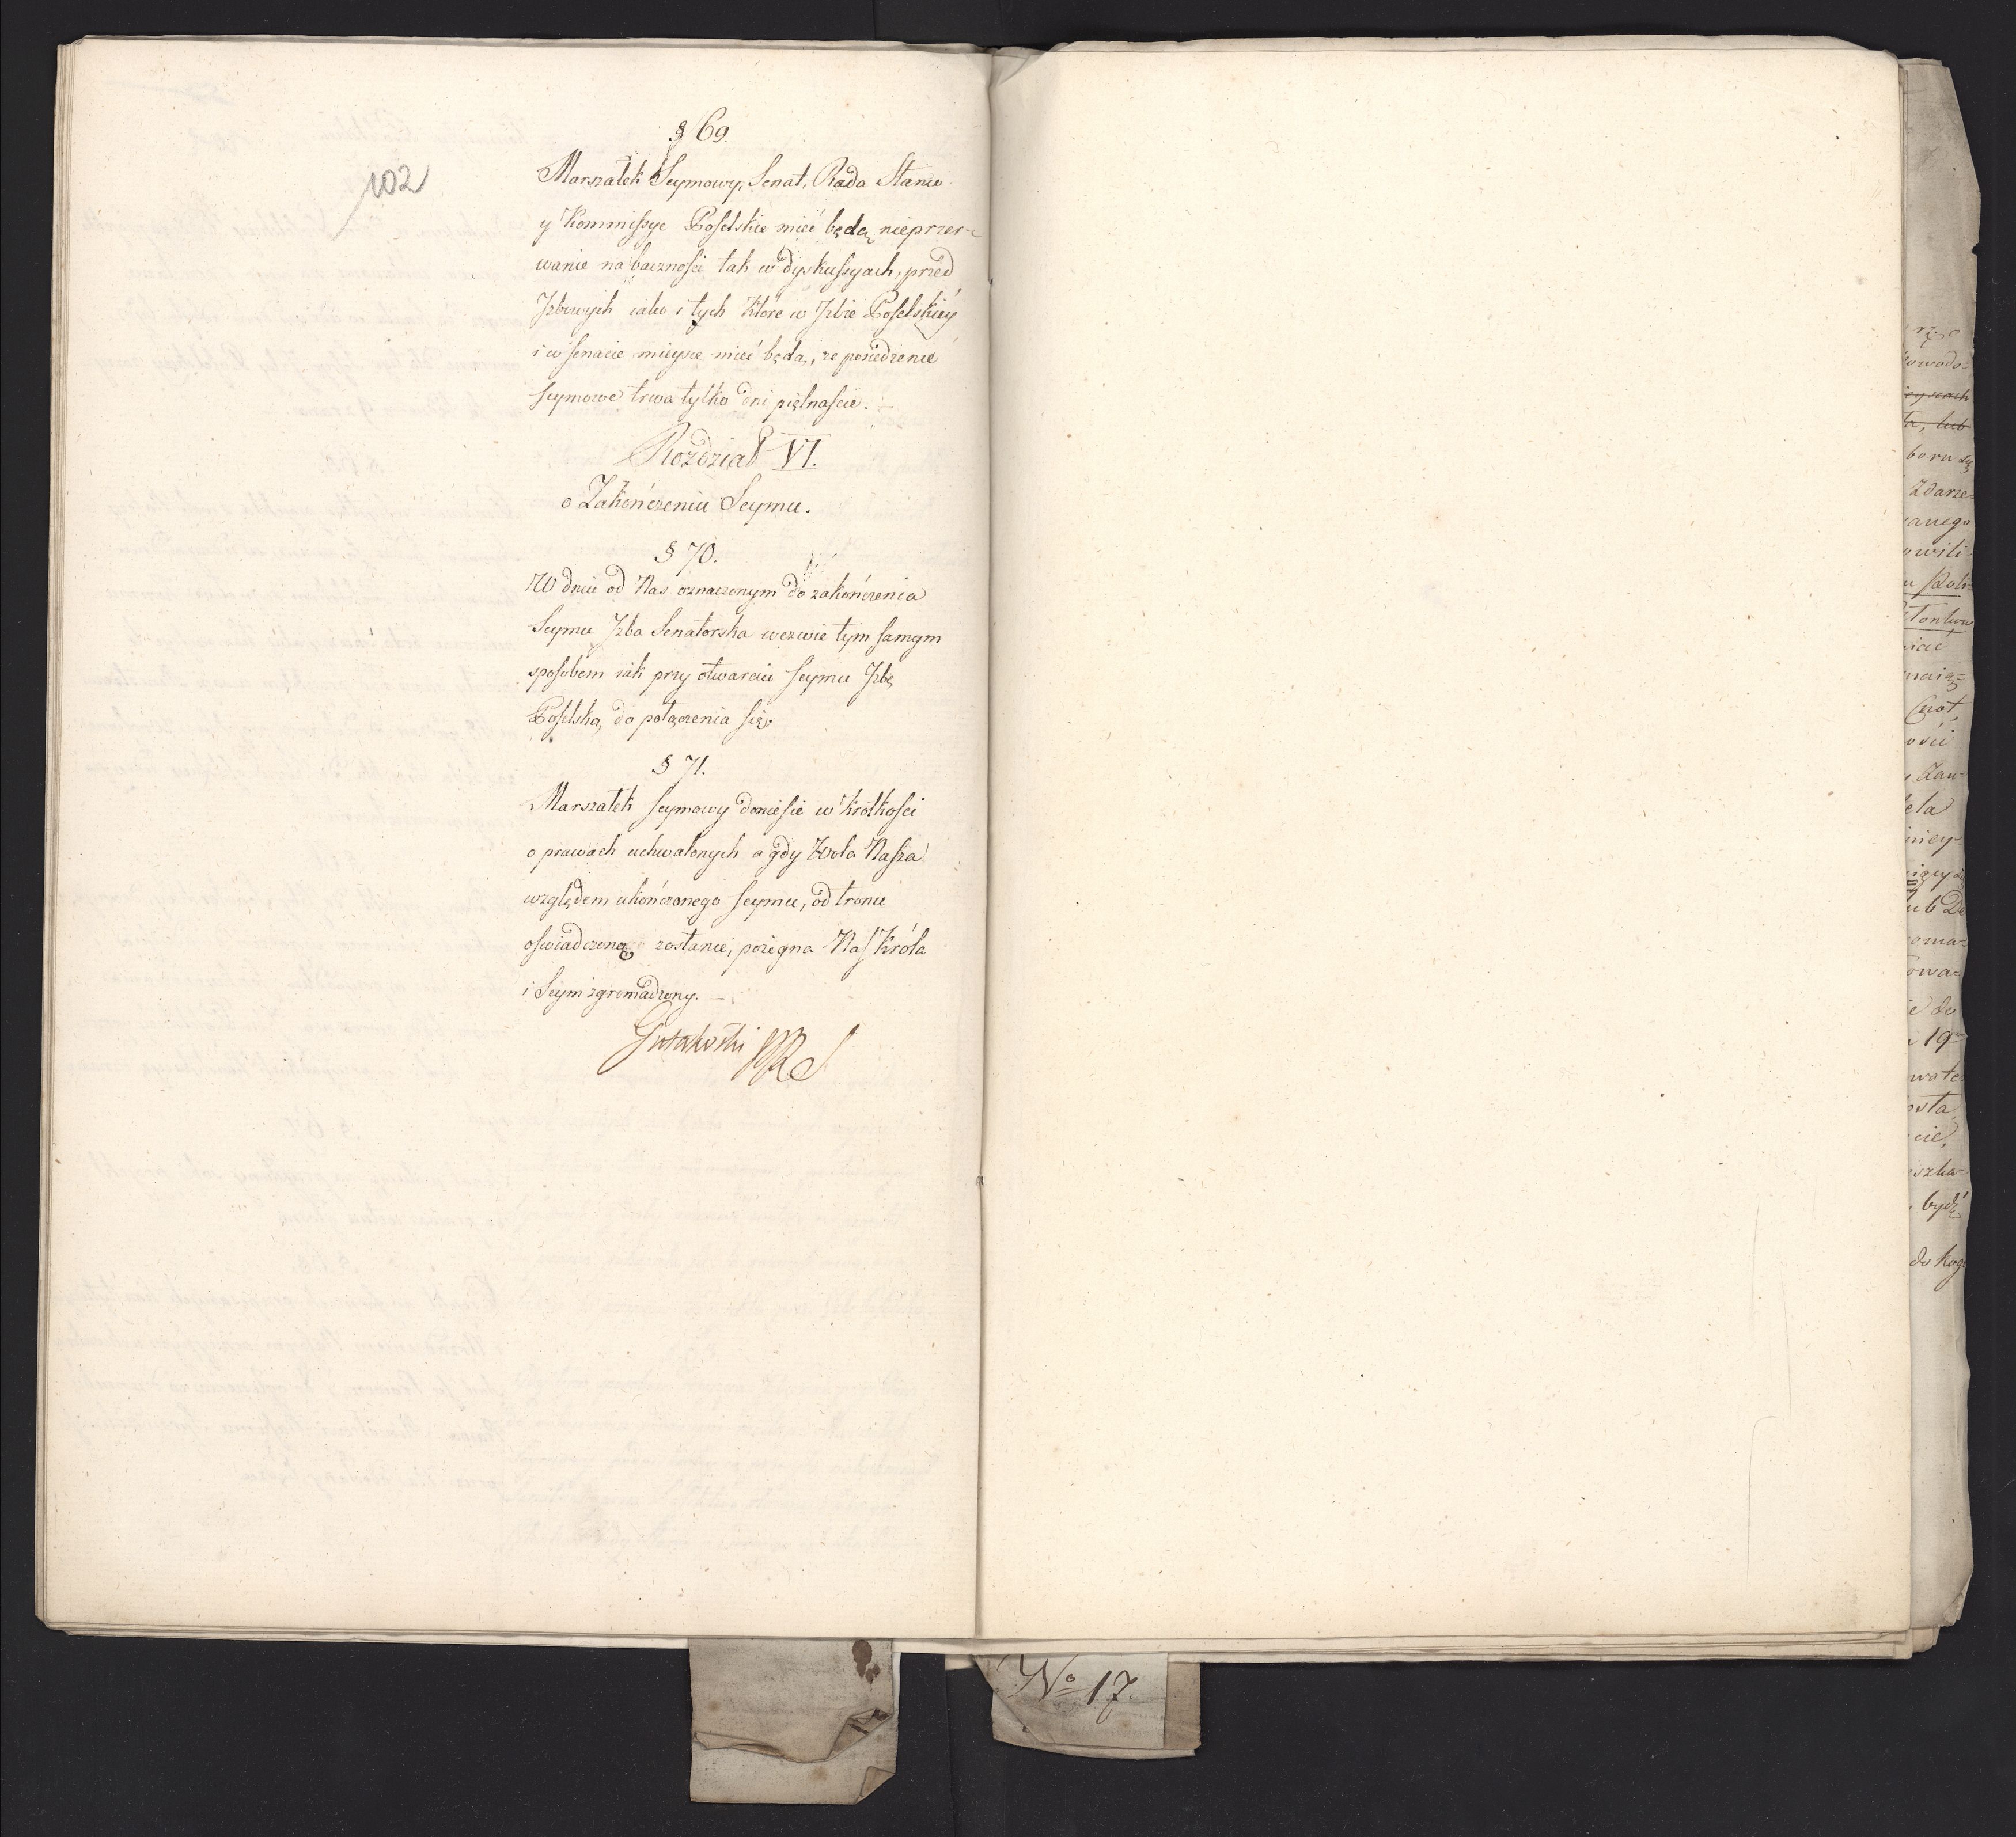 102
§ 69.
Marszałek Seymowy, Senat, Rada Stanu
y Kommissye Poselskie mieć będą nieprzer-
wanie na baczności tak w dyskussyach, przed
Izbowych iako i tych które w Izbie Poselskiéy
i w senacie mieysce mieć będą, że posiedzenie
seymowe trwa tylko dni piętnaście. —
Rozdział VI.
o Zakończeniu Seymu.
§ 70.
W dniu od Nas oznaczonym do zakończenia
Seymu Izba Senatorska wezwie tym samym
sposobem iak przy otwarciu seymu Izbę
Poselską do połączenia się.
§ 71.
Marszałek seymowy doniesie w krótkości
o prawach uchwalonych a gdy Wola Nasza
względem ukończonego seymu, od tronu
oświadczoną zostanie, pożegna Nas Króla
i Seym zgromadzony. —
Gutakowski
rzo
owodo-
eyscach
ta, lub
boru się
Zdarze-
anego
owili-
Cnot,
ości
Zau-
ela
niey-
ub De
oma-
owa-
ie do
19
wate
osta,
cie,
szka-
bydź
do kog
No 17.